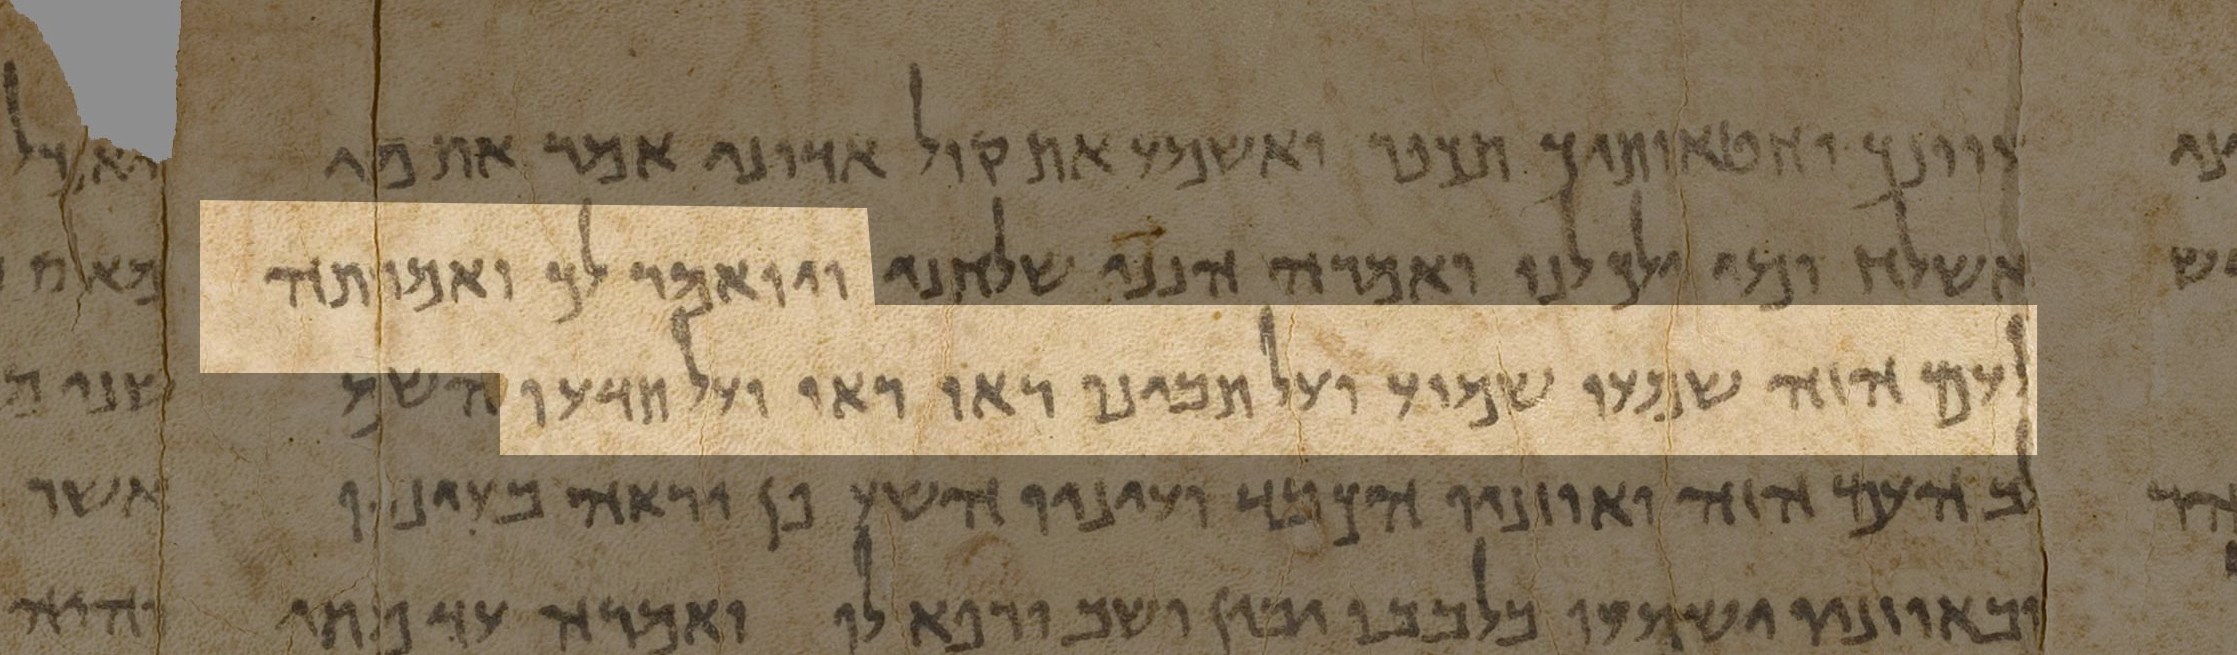 עוונך וחטאותיך תכפר ואשמע את קול אדוני אמר את מי
אשלח ומי ילך לנו ואמרה הנני שלחני ויואמר לך ואמרתה
לעם הזה שמעו שמוע ועל תבינו ראו ראו ועל תדעו השמ
לב העם הזה ואוזניו הכבד ועיניו השע פן יראה בעיניו
ובאוזניו ישמעו בלבבו יבין ושב ורפא לו ואמרה עד מתי
אשר
יהוה